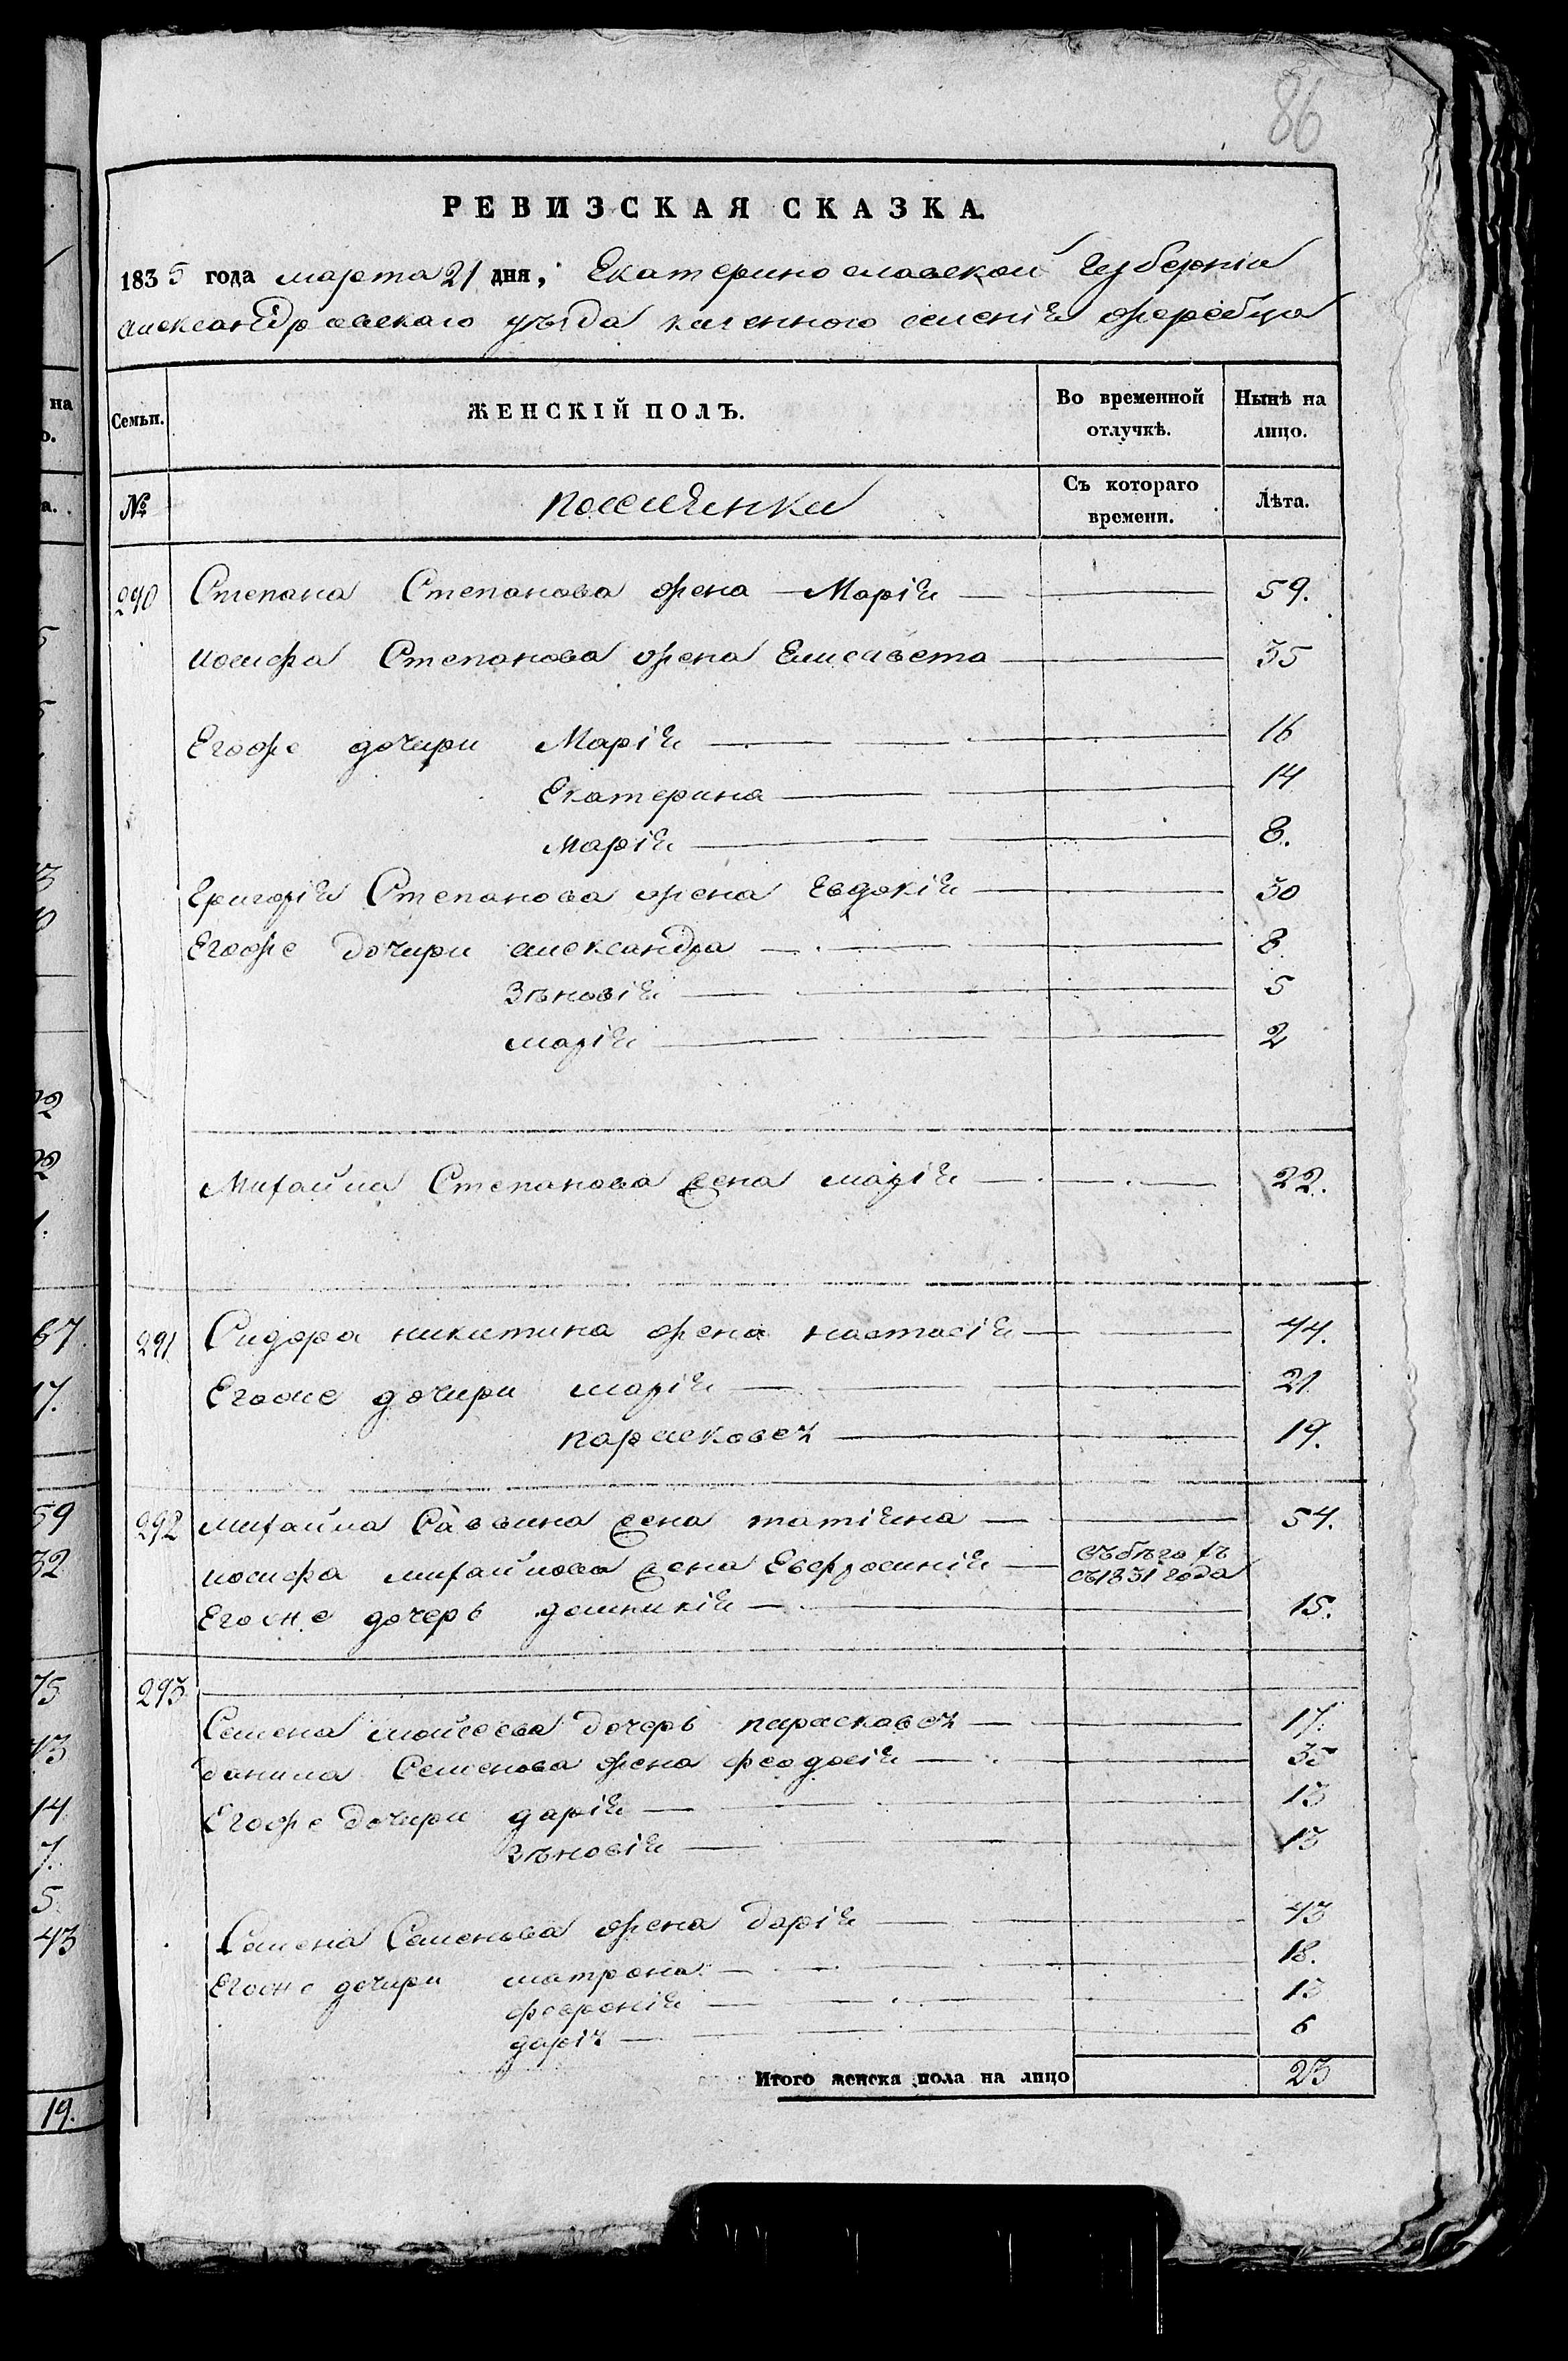 86
РЕВИЗСКАЯ СКАЗКА.
1835 года марта 21 дня, Екатеринославской Губерніи
Александровскаго уѣзда казенного селенія жеребца
Семьи. ЖЕНСКІЙ ПОЛЪ. Во временной отлучкѣ. Нынѣ на лицо.
№ поселянки Съ котораго времени. Лѣта.
290 Степана Степанова жена Марія 59.
иосифа Степанова жена Елисавета 35
Егоже дочири Марія 16
Екатерина 14
Марія 8.
Григорія Степанова жена Евдокія 30
Егоже дочири александра 8.
Зѣновія 5
марія 2
Михайла Степанова жена марія 22.
291 Сидора никитина жена настасія 44.
Егоже дочири марія 21
парасковея 19.
292 Михайла Саввина жена татіяна 54.
иосифа михайлова жена Евфросинія въ бѣгахъ съ 1831 года
Егоже дочерь домникія 15.
293
Семена моисеева дочерь парасковея 17.
данила Семенова жена феодосія 35
Егоже дочири дарія 13
Зѣновія 13
Семена Семенова жена дарія 43
Егоже дочири матрона 18.
февронія 13
дарія 6
Итого женска пола на лицо 23
на
о.
а.
5
5
13
22
22
1.
67.
17.
59
32
75
43
14
7.
5
43
19.